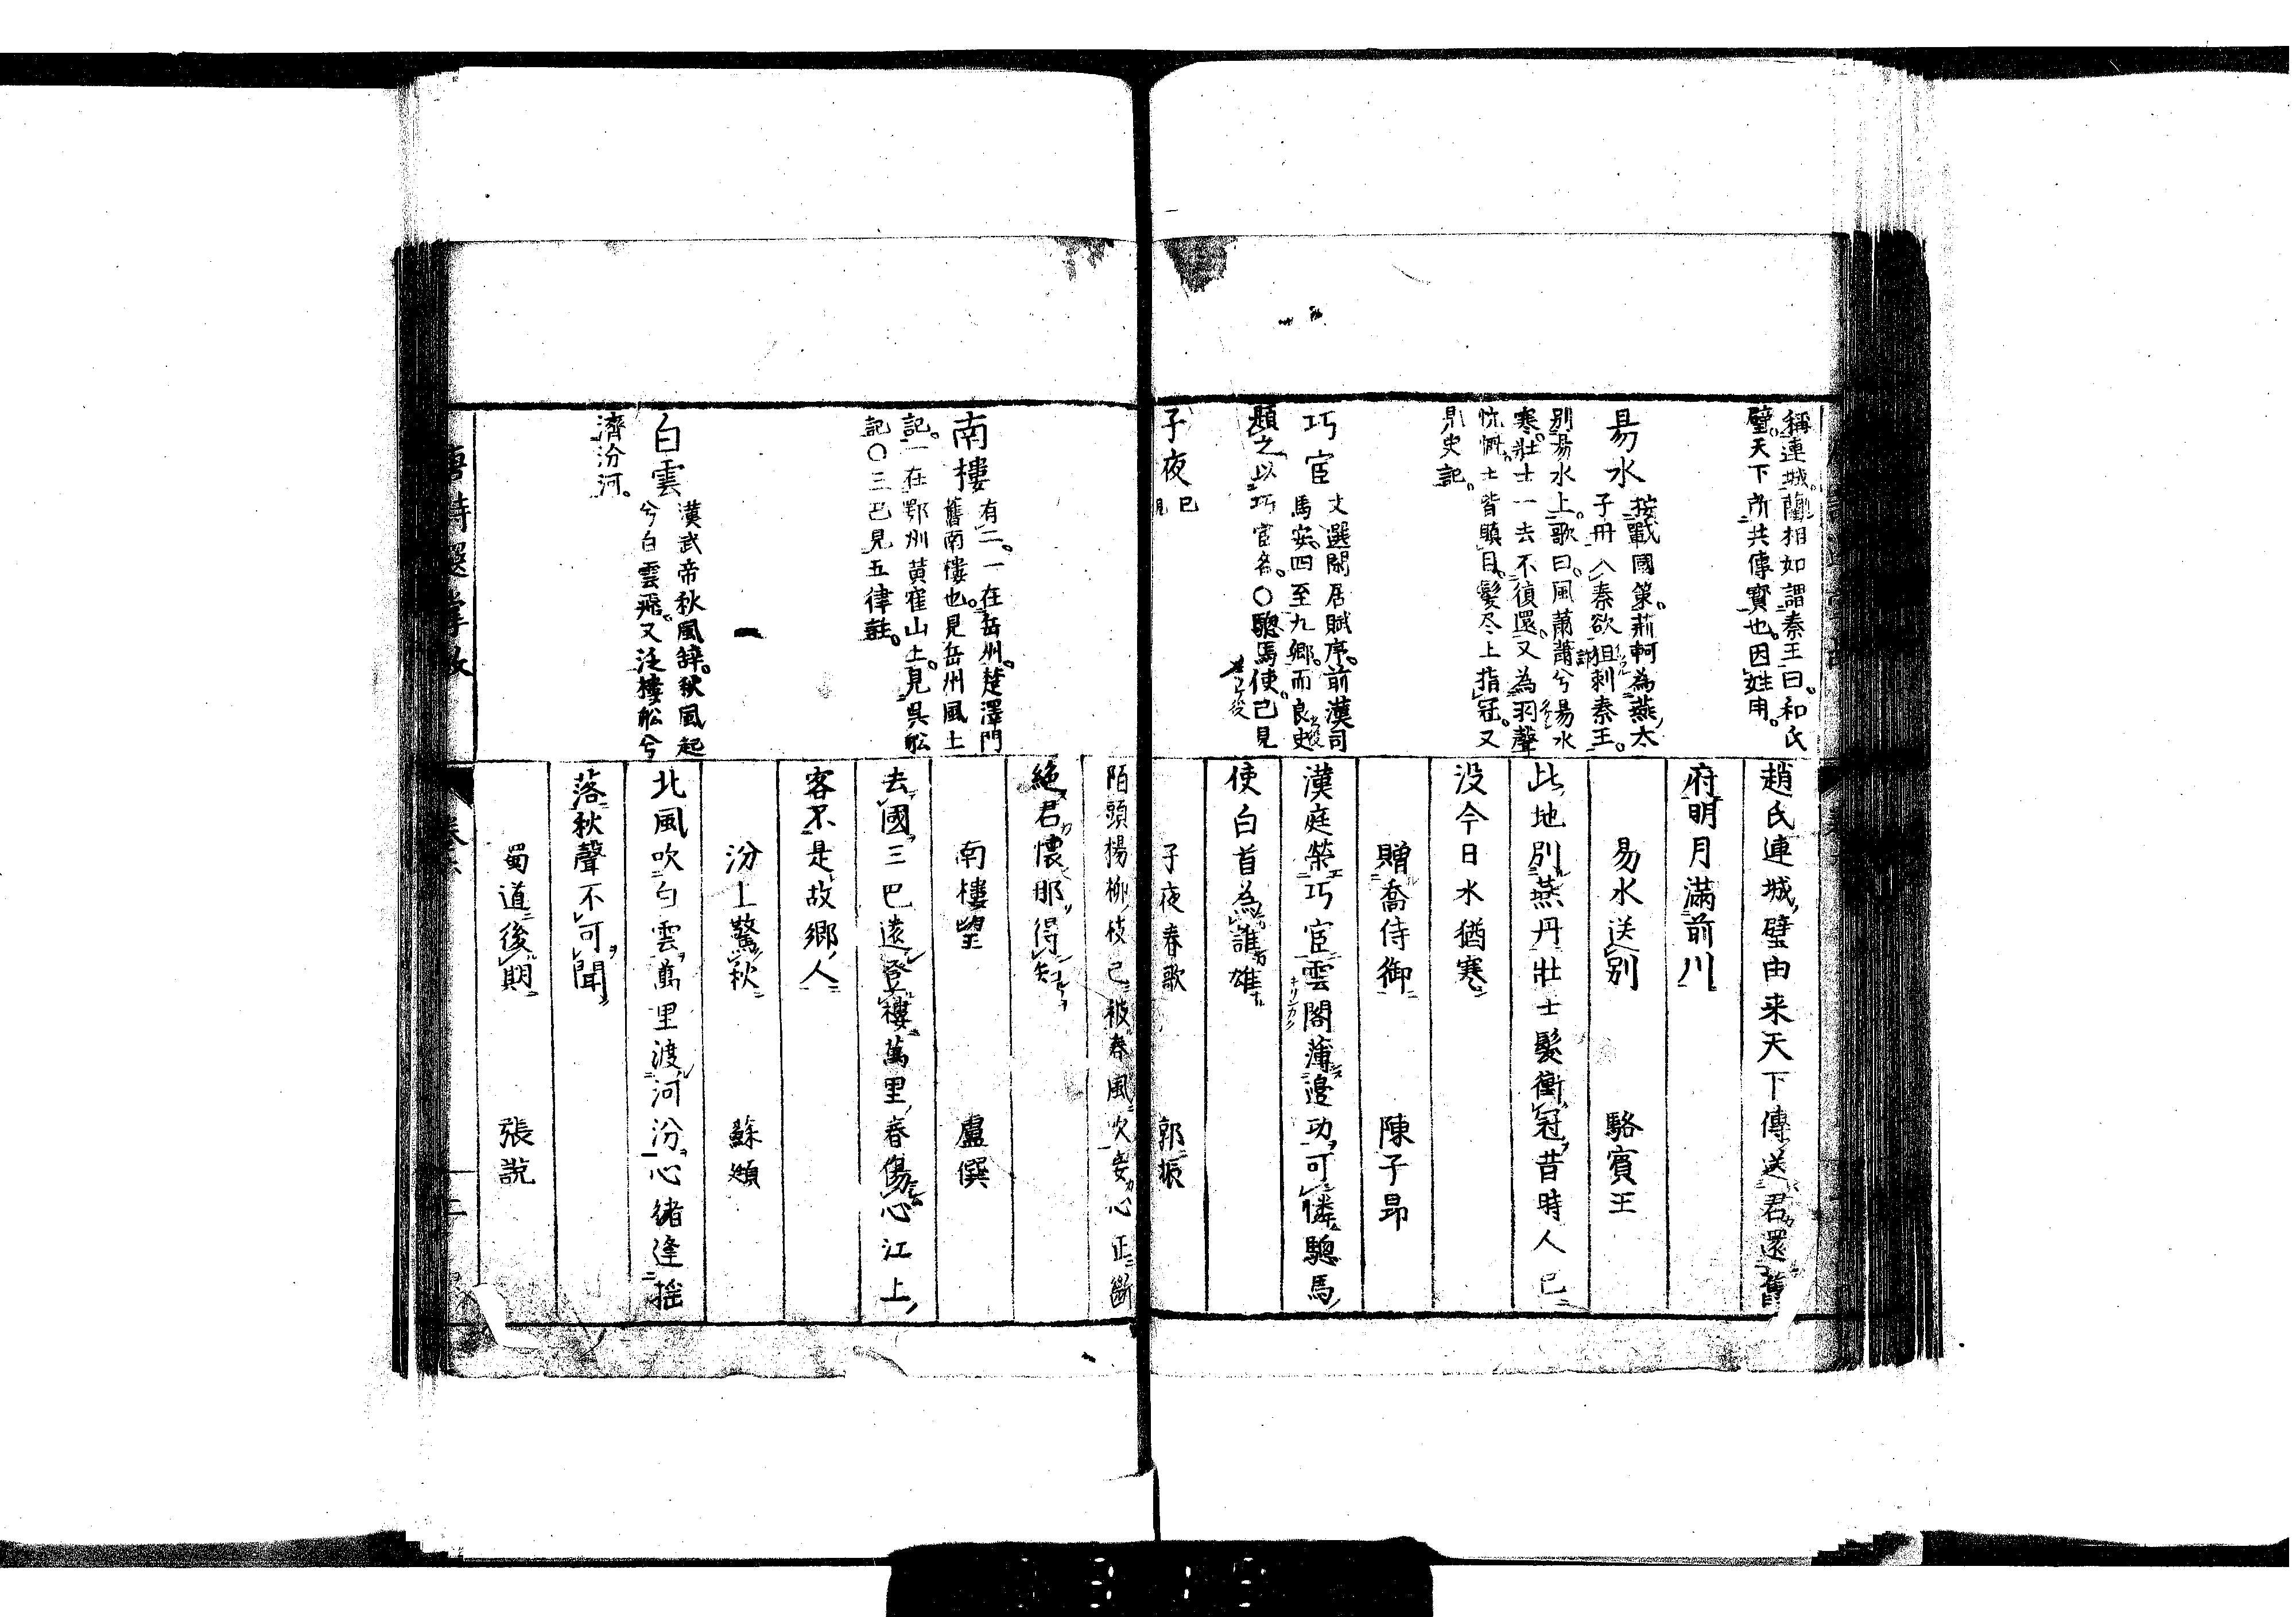 稱連城藺相如謂秦王曰和氏
璧天下所共傳寶也因姓用
易水
按戰國策荊軻為燕太
子丹入秦欲狙刺秦王
別易水上歌曰風蕭蕭兮易水
寒壯士一去不復還又為羽聲
忼慨士皆瞋目髮尽上指冠又
見史記
巧宦
文選閑居賦序前漢司
馬安四至九卿而良史
題之以巧宦名〇驄馬使已見
子夜
已
見
趙氏連城璧由来天下傳送君還舊
府明月滿前川
易水送別 駱賓王
此地別燕丹壯士髮衝冠昔時人已
没今日水猶寒
贈喬侍御 陳子昂
漢庭榮巧宦雲閣薄邊功可憐驄馬
使白首為誰雄
子夜春歌 郭振
南樓
有二一在岳州楚澤門
舊南樓也見岳州風土
記一在鄂州黃隺山上見吳舩
記〇三巴見五律註
白雲
漢武帝秋風辞秋風起
兮白雲飛又泛樓舩兮
濟汾河
陌頭楊柳枝已被春風吹妾心正斷
絕君懷那得知
南樓望 盧僎
去國三巴遠登樓萬里春傷心江上
客不是故鄉人
汾上驚秋 蘇頲
北風吹白雲萬里渡河汾心緒逢搖
落秋聲不可聞
蜀道後期 張說
唐詩選掌故